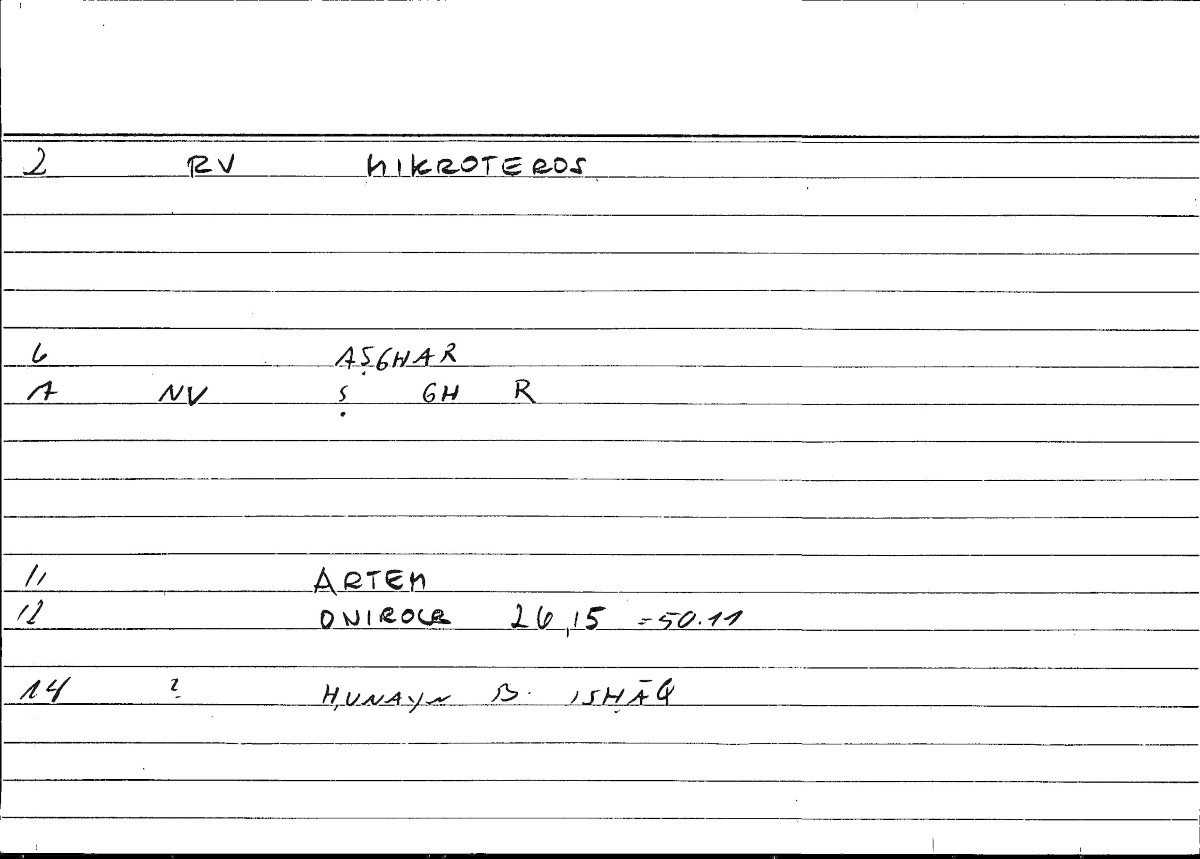 2 RV MIKROTEROS
6 AṢGHAR
7 NV Ṣ GH R
11 ARTEM
12 ONIROCR 26,15 =50.11
14 ? ḤUNAYN B. ISḤĀQ